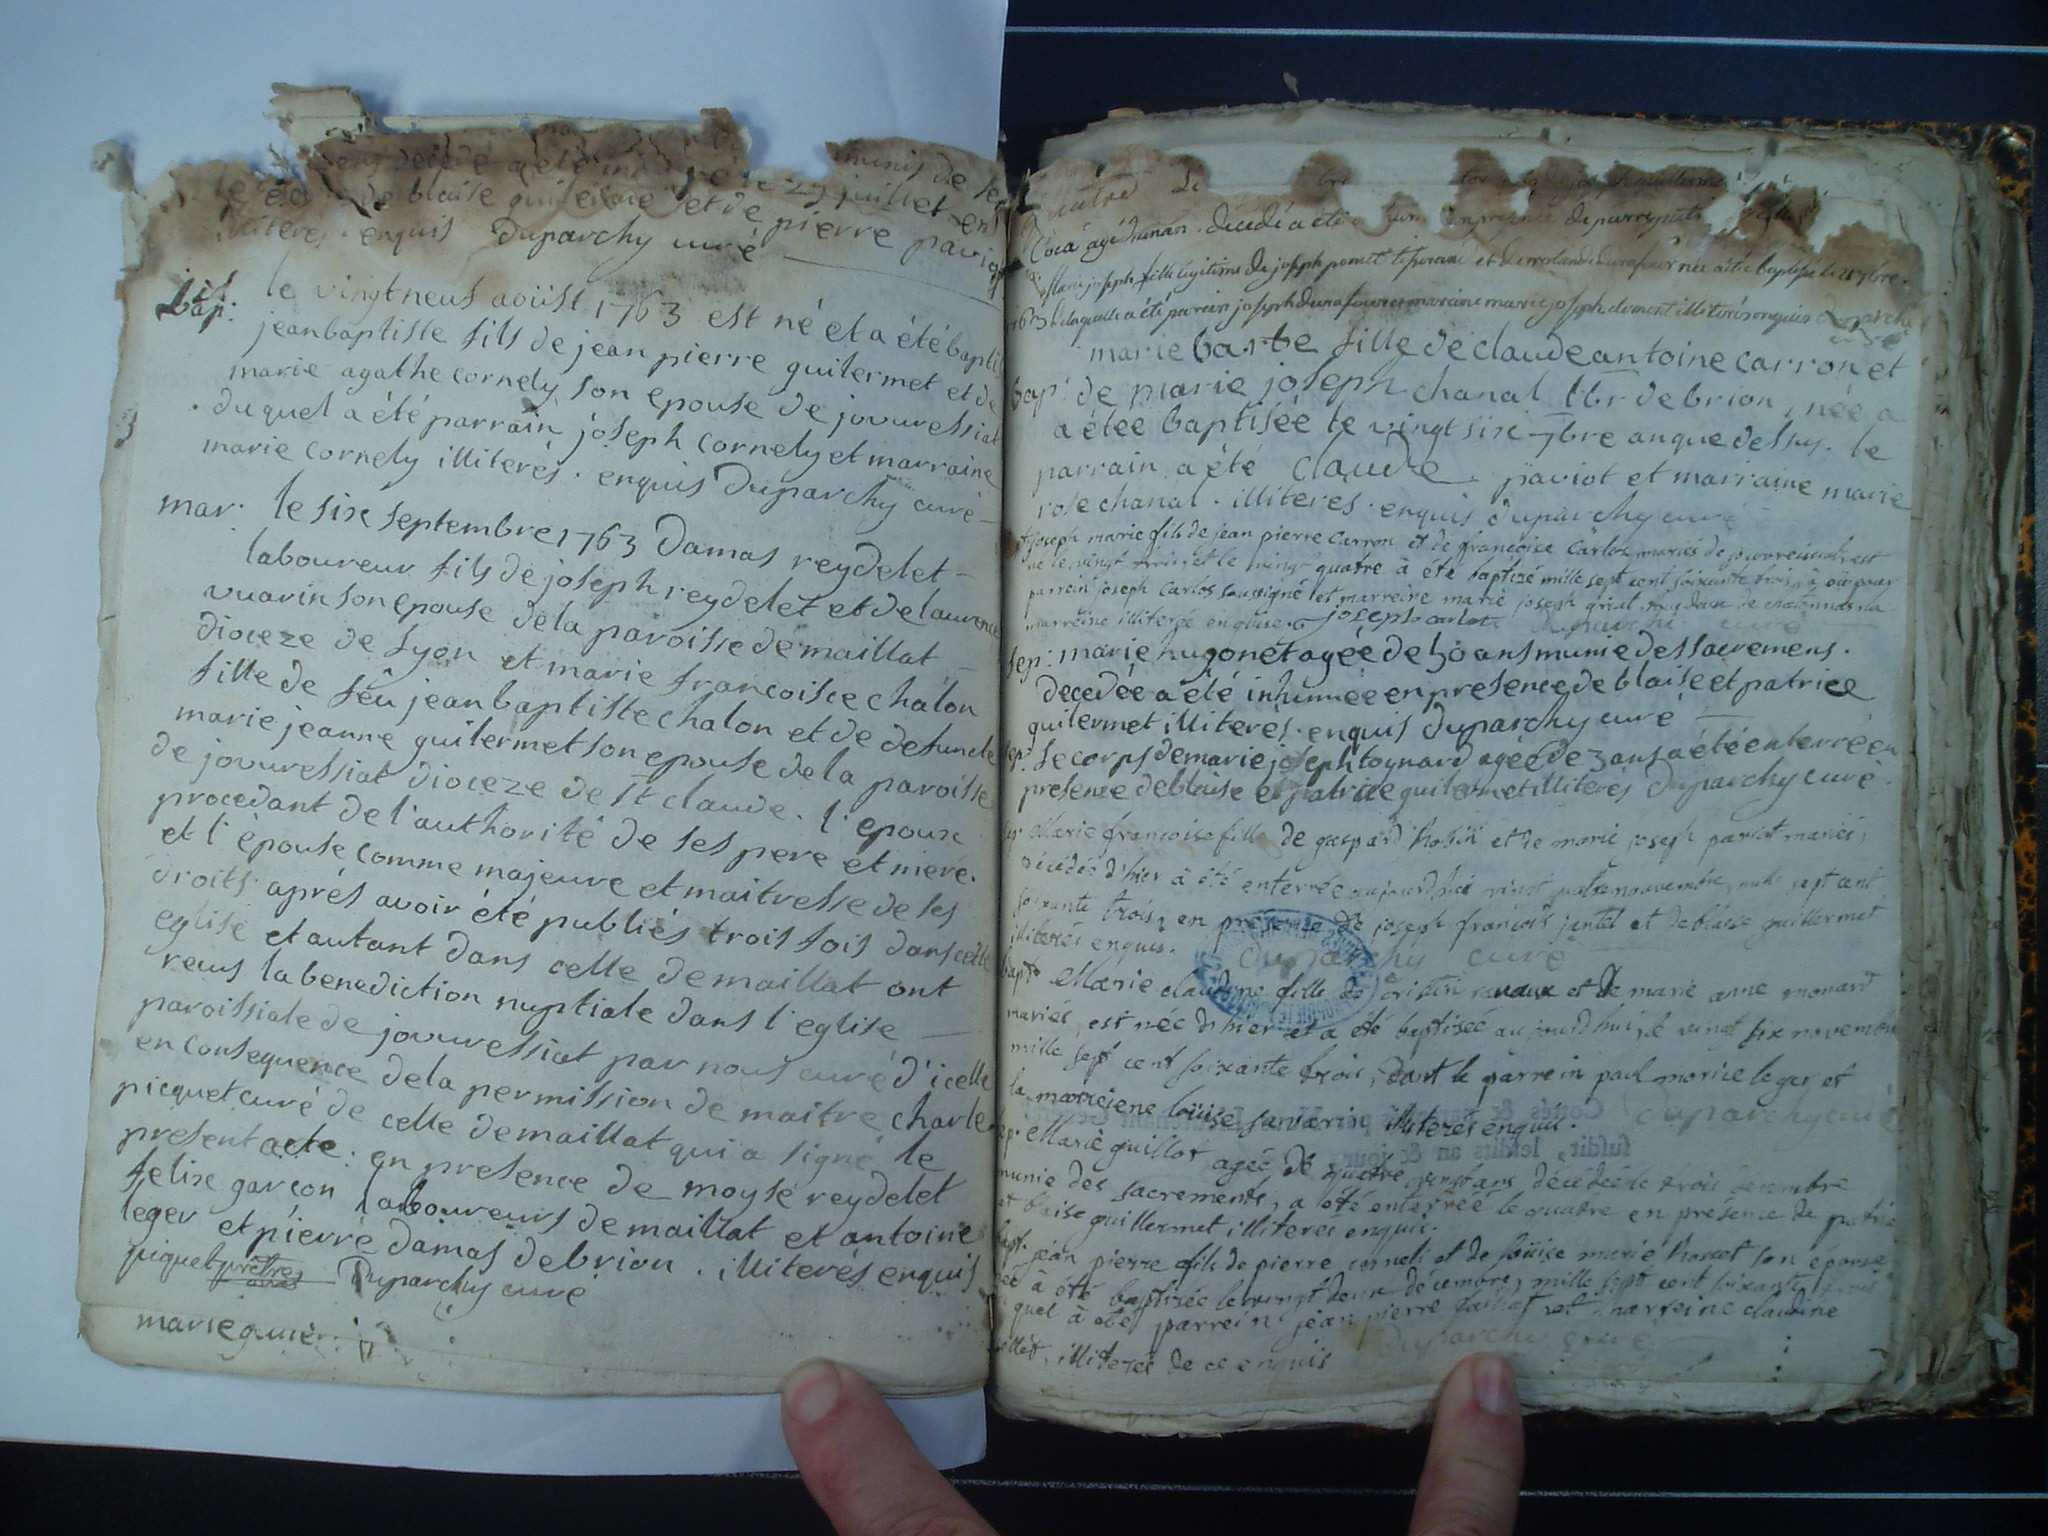 decedé a eté munis de se
de blaise guilermet et de pierre paviot
illiterés. enquis Duparchy curé
bap: le vingt neuf aoüst 1763 est né et a été bapti
jean baptiste fils de jean pierre guilermet et de
marie agathe cornely son epouse de jouvressiat
duquel a été parrain joseph cornely et marraine
marie cornely illiterés. enquis Duparchy curé
mar: le six septembre 1763 Damas reydelet
laboureur fils de joseph reydelet et de laurence
vuarin son epouse de la paroisse de maillat
dioceze de Lyon et marie francoisce chalon
fille de feû jean baptiste chalon et de defuncte
marie jeanne guilermet son epouse de la paroisse
de jouvressiat dioceze de st claude. l'epoux
procedant de l'authorité de ses pere et mere.
et l'épouse comme majeure et maitresse de ses
droits aprés avoir été publiés trois fois dans cette
eglise et autant dans celle de maillat ont
reçus la benediction nuptiale dans l'eglise
paroissiale de jouvressiat par nous curé d'icelle
en consequence de la permission de maitre charle
picquet curé de celle de maillat qui a signé le
present acte. en presence de moyse reydelet
felix garçon laboureurs de maillat et antoine
leger et piérre damas de brion. illiterés enquis
piquet Duparchy curé
marie
agé decedé a été en presence de
Marie joseph fille legitime de joseph ponset et a été baptisée le
laquelle a été parrein joseph et mareine marie joseph illiterés enquis
marie barbe fille de claude antoine carron et
bap: de marie joseph chanal lbr de brion, née a
a étée baptisée le vingt six 7bre an que dessus. le
parrain a été claude paviot et marraine marie
rose chanal. illiteres. enquis duparchy curé
joseph marie fils de jean pierre Carron et de francoise Carlos mariés de jouvressiat est
né le vingt trois et le vingt quatre à été baptizé mille sept cent soixante trois, à eü pour
parrein joseph Carlos soussigné et marreine marie joseph
marreine illiterée enquise joseph carlot curé
sep: marie hugonet agée de 50 ans munie des sacremens.
decedée a été inhumée en presence de blaise et patrice
guilermet illiteres. enquis duparchy curé
sep: le corps de marie joseph tognard agée de 3 ans a été enterré en
presence de blaise et patrice guilermet illiterés Duparchy curé
Marie francoise fille de gaspard et de marie joseph mariés,
décédés d'hier à été enterrée aujourd'hui vingt quatre novembre, mille sept cent
soixante trois, en presence de joseph françois jantet et de blaise guillermet
illiterés enquis. duparchy curé
bapt. Marie claudine fille de et de marie anne monard
mariés, est née d'hier et a été baptisée aujourd'hui, le vingt six novembre
mille sept cent soixante trois, dont le parrein paul morice leger et
la marreiene loüise savarin illiterés enquis. duparchy curé
sep. Marie guillot agée de quatre vingt ans décédée le trois decembre
munie des sacrements, a été enterréé le quatre en présence de patrice
et blaise guillermet illiteres enquis.
bapt. jéan pierre fils de pierre corneli et de loüise marie son épouse
né à été baptizée le vingt deux décembre, mille sept cent soixante trois
quel à été parrein jéan pierre et marreine claudine
illiterés de ce enquis duparchy curé